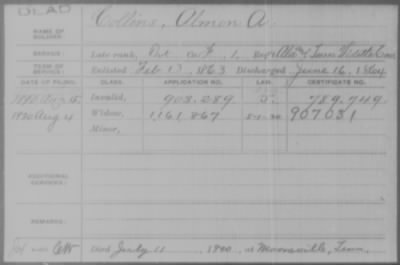 DEAD
Collins, Almon A.
NAME OF SOLDIER:
SERVICE: Late rank, Pvt Co. F, 1, Reg't Ala & Tenn Vidette Cav
TERM OF SERVICE: Enlisted Feb 1, 1863 Discharged June 16, 1864
DATE OF FILING. CLASS. APPLICATION NO. LAW. CERTIFICATE NO.
1890 Aug 15 Invalid, 903.289 789.749
1900 Aug 4 Widow, 1,161.867 907031
Minor,
ADDITIONAL SERVICES:
REMARKS:
Died July 11, 1900, at Mooresville, Tenn.